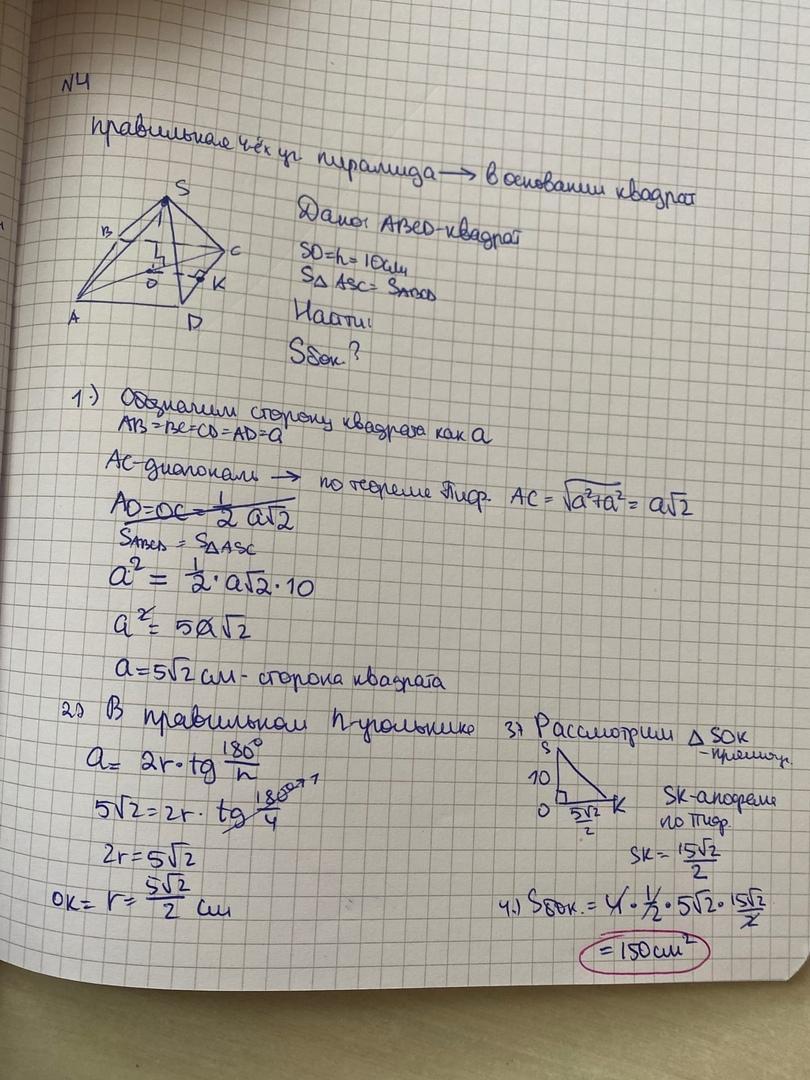 N4
правильная 4ёх уг пирамида → в основании квадрат
S
B
C
O
K
A
D
Дано: ABCD-квадрат
SO=h=10см
S△ ASC = SABCD
Найти:
Sбок?
1.) Обозначим сторону квадрата как a
AB=BC=CD=AD=a
AC-диагональ → по теореме Пиф. AC = √a²+a² = a√2
AO=OC=1/2 a√2
SABCD = S△ASC
a² = 1/2 · a√2 · 10
a² = 5a√2
a=5√2 см - сторона квадрата
2.) В правильном n-угольнике
a= 2r·tg 180°/n
5√2=2r· tg 180°/4 →1
2r=5√2
OK= r= 5√2/2 см
3) Рассмотрим △ SOK
-прямоуг.
S
10
O
5√2/2
K
SK-апофема
по Пиф.
SK= 15√2/2
4.) Sбок. = 4·1/2·5√2·15√2/2
=150см²